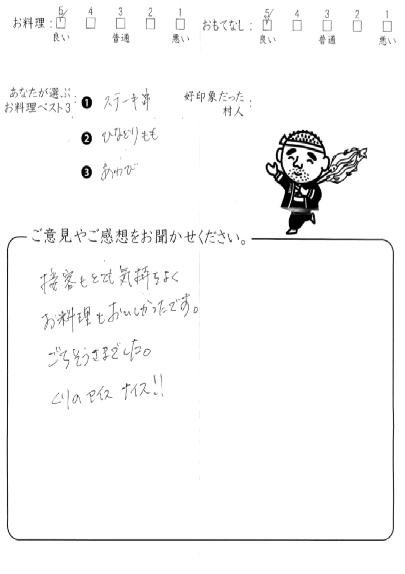 お料理: 5 4 3 2 1
良い 普通 悪い
おもてなし: 5 4 3 2 1
良い 普通 悪い
あなたが選ぶ
お料理ベスト3:
❶ ステーキ串
❷ ひなどりもも
❸ あわび
好印象だった
村人:
ご意見やご感想をお聞かせください。
接客もとても気持ちよく
お料理もおいしかったです。
ごちそうさまでした。
くりのアイス ナイス!!